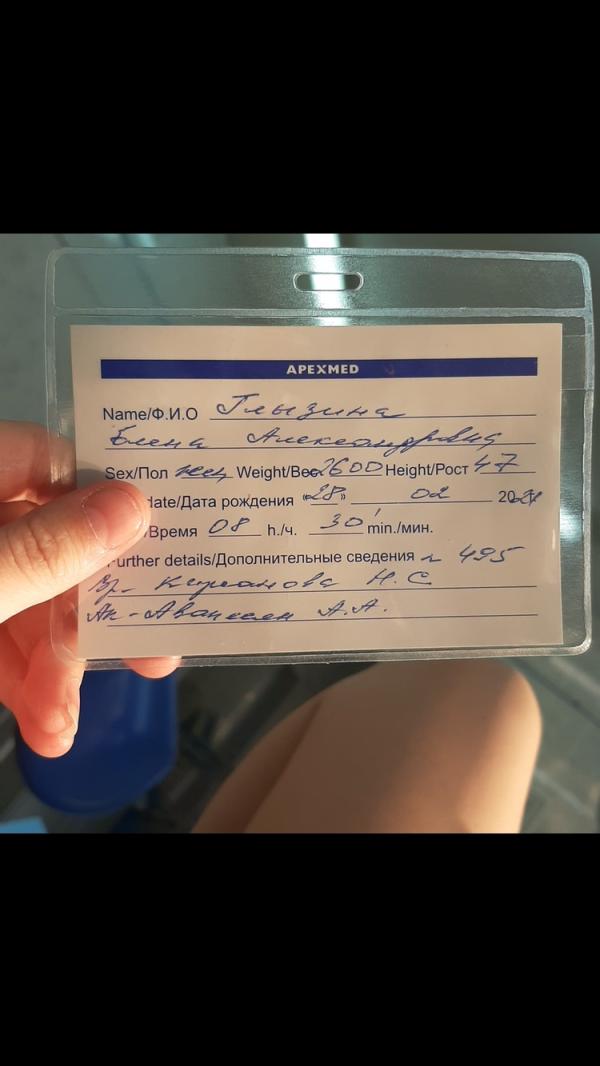 APEXMED
Name/Ф.И.О Глызина
Елена Александровна
Sex/Пол жен Weight/Вес 2600 Height/Рост 47
date/Дата рождения «28» 02 2021
/Время 08 h./ч. 30 min./мин.
Further details/Дополнительные сведения 495
Вр- Н.С.
Ак- А.А.